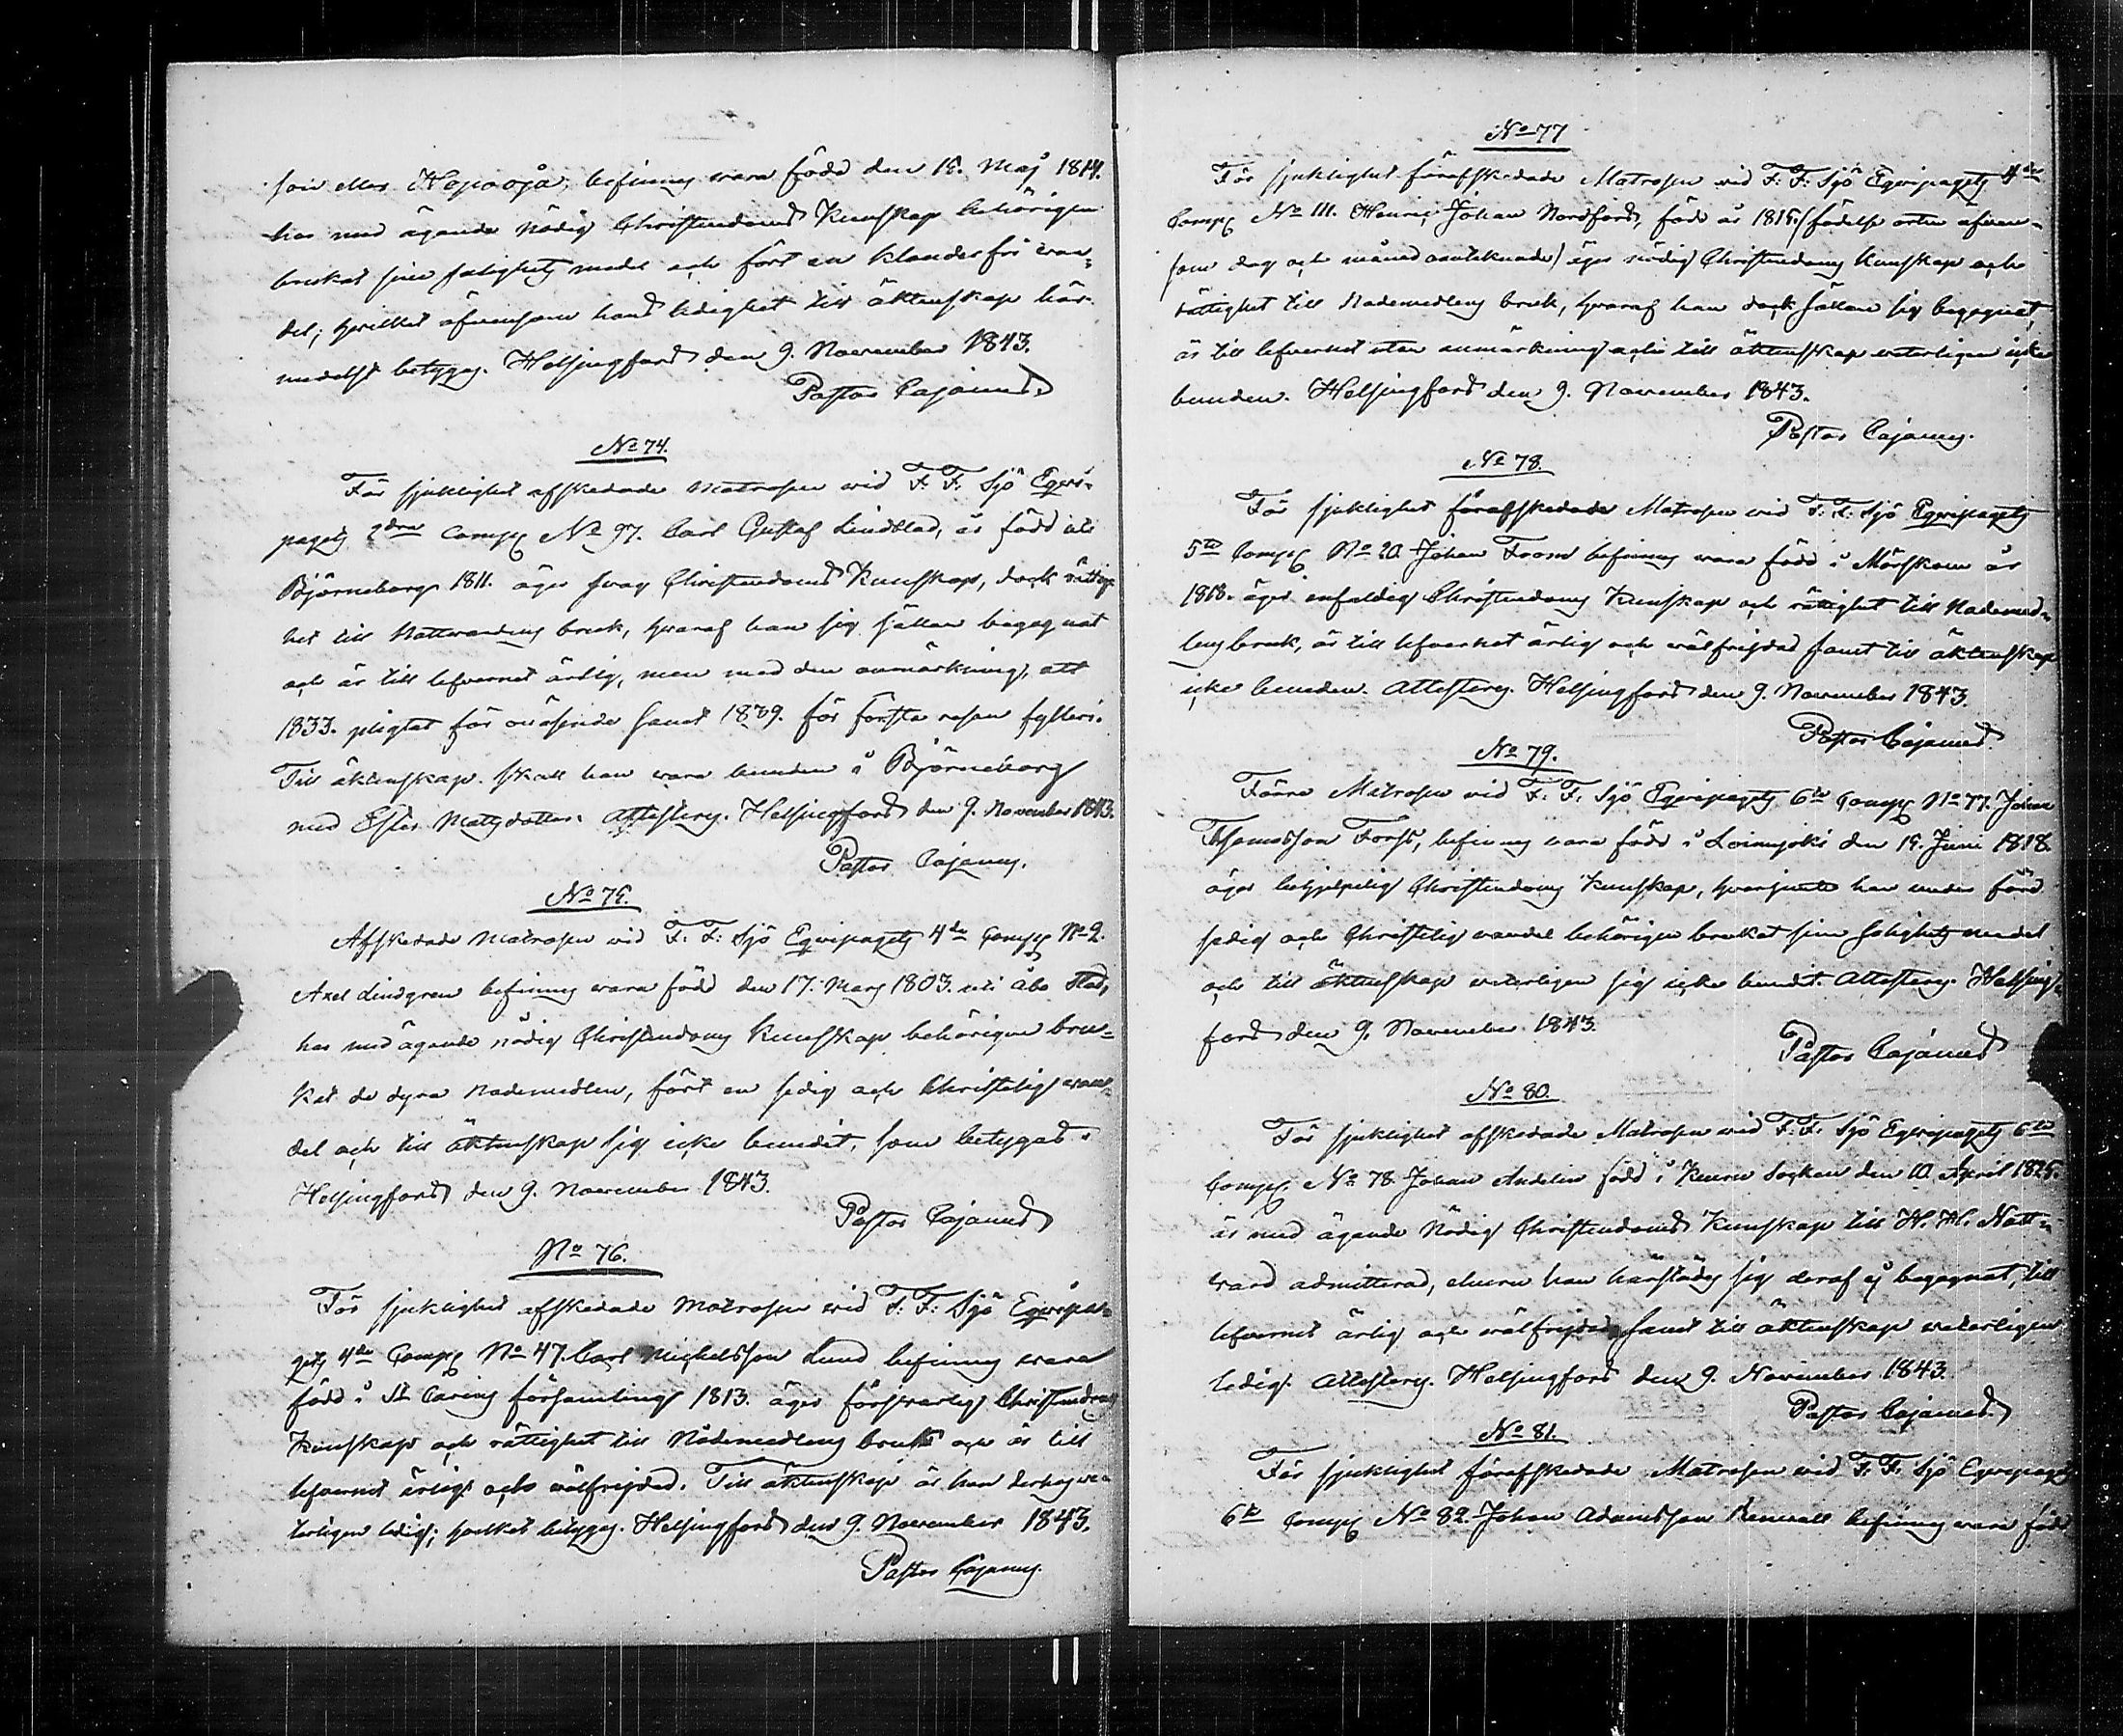 son eller Hopooja, befinnes vara född den 15. Maj 1814.
har med ägande nödig Christendoms Kunskap behörigen
brukat sine salighets medel och fört en klanderfri wan-
del; hvilket äfvensom hans ledighet till äktenskap här-
medelst betygas. Helsingfors den 9. November 1843.
Pastor Cajanus.
No 74.
För sjuklighet afskedade Matrosen wid F. F. Sjö Equi-
pagets 2dra Comp: No 97. Carl Gustaf Lindblad, är född uti
Björneborg 1811. äger svag Christendoms Kunskap, dock rättig-
het till Nattvardens bruk, hvaraf han sig sällan begagnat
och är till lefvernet ärlig, men med den anmärkning, att
1833. pligtat för oväsende samt 1839. för första resan fylleri.
Till äktenskap skall han vara bunden i Björneborg
med Ester Matsdotter. Attesteras. Helsingfors den 9. November 1843.
Pastor Cajanus.
No 75.
Afskedade Matrosen wid F. F. Sjö Equipagets 4de Comp: No 2.
Axel Lindgren befinnes vara född den 17. Mars 1803. uti Åbo Stad,
har med ägande nödig Christendoms Kunskap behörigen bru-
kat de dyra Nådemedlen, fört en sedig och Christelig wan-
del och till äktenskap sig icke bundit, som betygas.
Helsingfors den 9. November 1843.
Pastor Cajanus
No 76.
För sjuklighet afskedade Matrosen wid F. F. Sjö Equipa-
gets 4de Comp: No 47. Carl Michelsson Lund befinnes vara
född i St Carins församling 1813. äger försvarlig Christendoms
Kunskap och rättighet till Nådemedlens bruk och är till
lefvernet ärlig och wälfrejdad. Till äktenskap är han härtills we-
terligen ledig; hvilket betygas. Helsingfors den 9. November 1843.
Pastor Cajanus.
No 77
För sjuklighet förafskedade Matrosen wid F. F. Sjö Equipagets 4de
Comp: No 111. Henric Johan Nordfors, född år 1815. (födelse orten äfven-
som dag och månad oantecknade) äger nödig Christendoms kunskap och
rättighet till Nådemedlens bruk, hvaraf han dock sällan sig begagnat,
är till lefvernet utan anmärkning och till äktenskap veterligen icke
bunden. Helsingfors den 9. November 1843.
Pastor Cajanus.
No 78.
För sjuklighet förafskedade Matrosen wid F. F. Sjö Equipagets
5te Comp: No 20. Johan From befinnes vara född i Mörskom år
1818. äger enfaldig Christendoms Kunskap och rättighet till Nådemed-
lens bruk, är till lefvernet ärlig och wälfrejdad samt till äktenskap
icke bunden. Attesteras. Helsingfors den 9. November 1843.
Pastor Cajanus.
No 79.
Förre Matrosen wid F. F. Sjö Equipagets 6te Comp: No 77. Johan
Thomsson Forss, befinnes vara född i Loimijoki den 15. Juni 1818.
äger behjelpelig Christendoms Kunskap, hvarjemte han under förd
sedig och Christelig wandel behörigen brukat sine salighets medel
och till äktenskap veterligen sig icke bundit. Attesteras. Helsing-
fors den 9. November 1843.
Pastor Cajanus
No 80.
För sjuklighet afskedade Matrosen wid F. F. Sjö Equipagets 6te
Comp: No 78. Johan Andelin född i Keuru Socken den 10. April 1825.
är med ägande Nödig Christendoms Kunskap till H. H. Natt-
vard admitterad, ehuru han härstädes sig deraf ej begagnat, till
lefvernet ärlig och wälfrejdad samt till äktenskap veterligen
ledig. Attesteras. Helsingfors den 9. November 1843.
Pastor Cajanus.
No 81.
För sjuklighet förafskedade Matrosen wid F. F. Sjö Equipagets
6te Comp: No 82. Johan Adamsson befinnes vara född